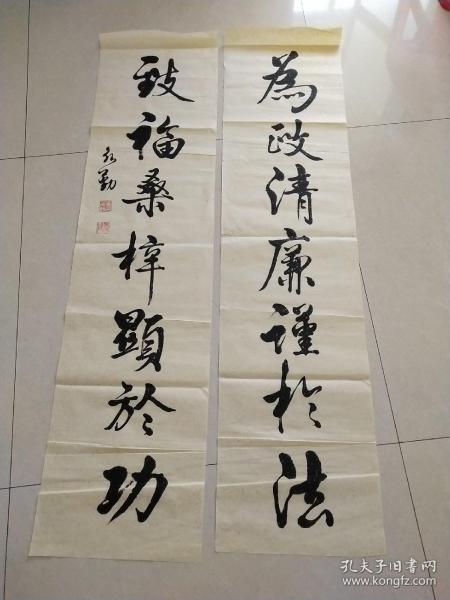 為政清廉謹於法
致福桑梓顯於功
永勤
孔夫子旧书网
www.kongfz.com